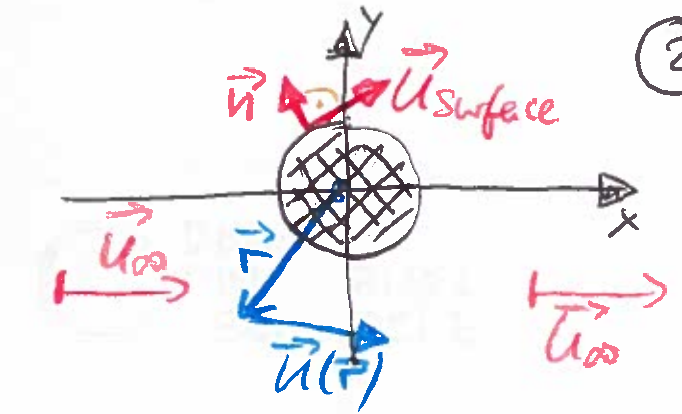 y
2
n⃗
u⃗ Surface
x
u⃗∞
r⃗
u⃗∞
u⃗(r⃗)